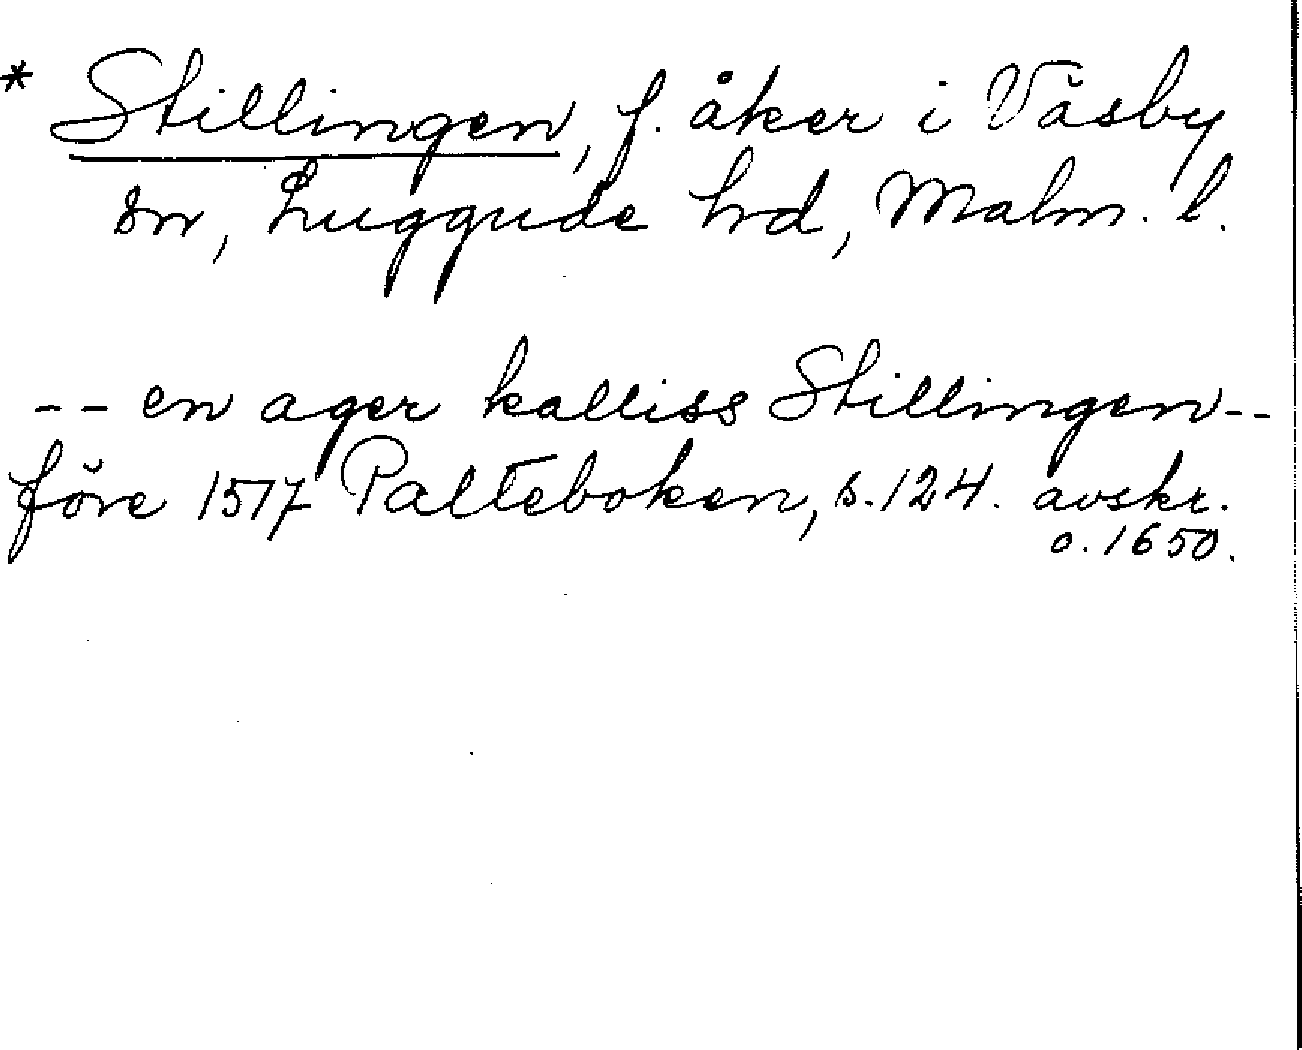 * Stillingen, f. åker i Väsby
sn, Luggude hrd, Malm. l.
-- en ager kalliss Stillingen --
före 1517 Palteboken, s. 124. avskr.
o. 1650.